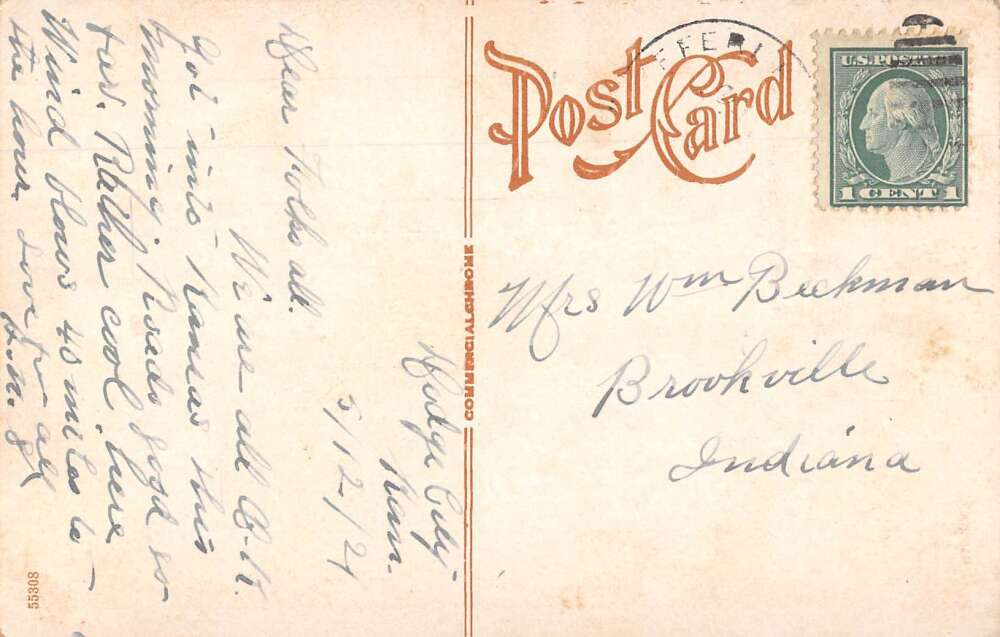 Post Card
U.S. POSTAGE
1 CENT 1
COMMERCIALCHROME
55308
Dodge City
Kan.
5/12/24
Dear Folks all.
We are all O.K.
Got into Kansas this
morning. Roads good so
far. Rather cool here
Wind blows 40 miles to
the hour Love to all
Mrs Wm Beekman
Brookville
Indiana